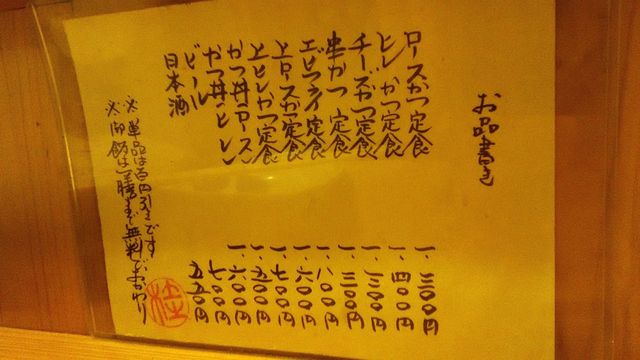 お品書き
ロースかつ定食 一、三〇〇円
ヒレかつ定食 一、四〇〇円
チーズかつ定食 一、三〇〇円
串かつ定食 一、三〇〇円
エビフライ定食 一、八〇〇円
上ロースかつ定食 一、六〇〇円
上ヒレかつ定食 一、七〇〇円
かつ丼(ロース) 一、五〇〇円
かつ丼(ヒレ) 一、六〇〇円
ビール 七〇〇円
日本酒 五五〇円
※単品は百円引きです
※御飯は一膳まで無料でおかわり
桂